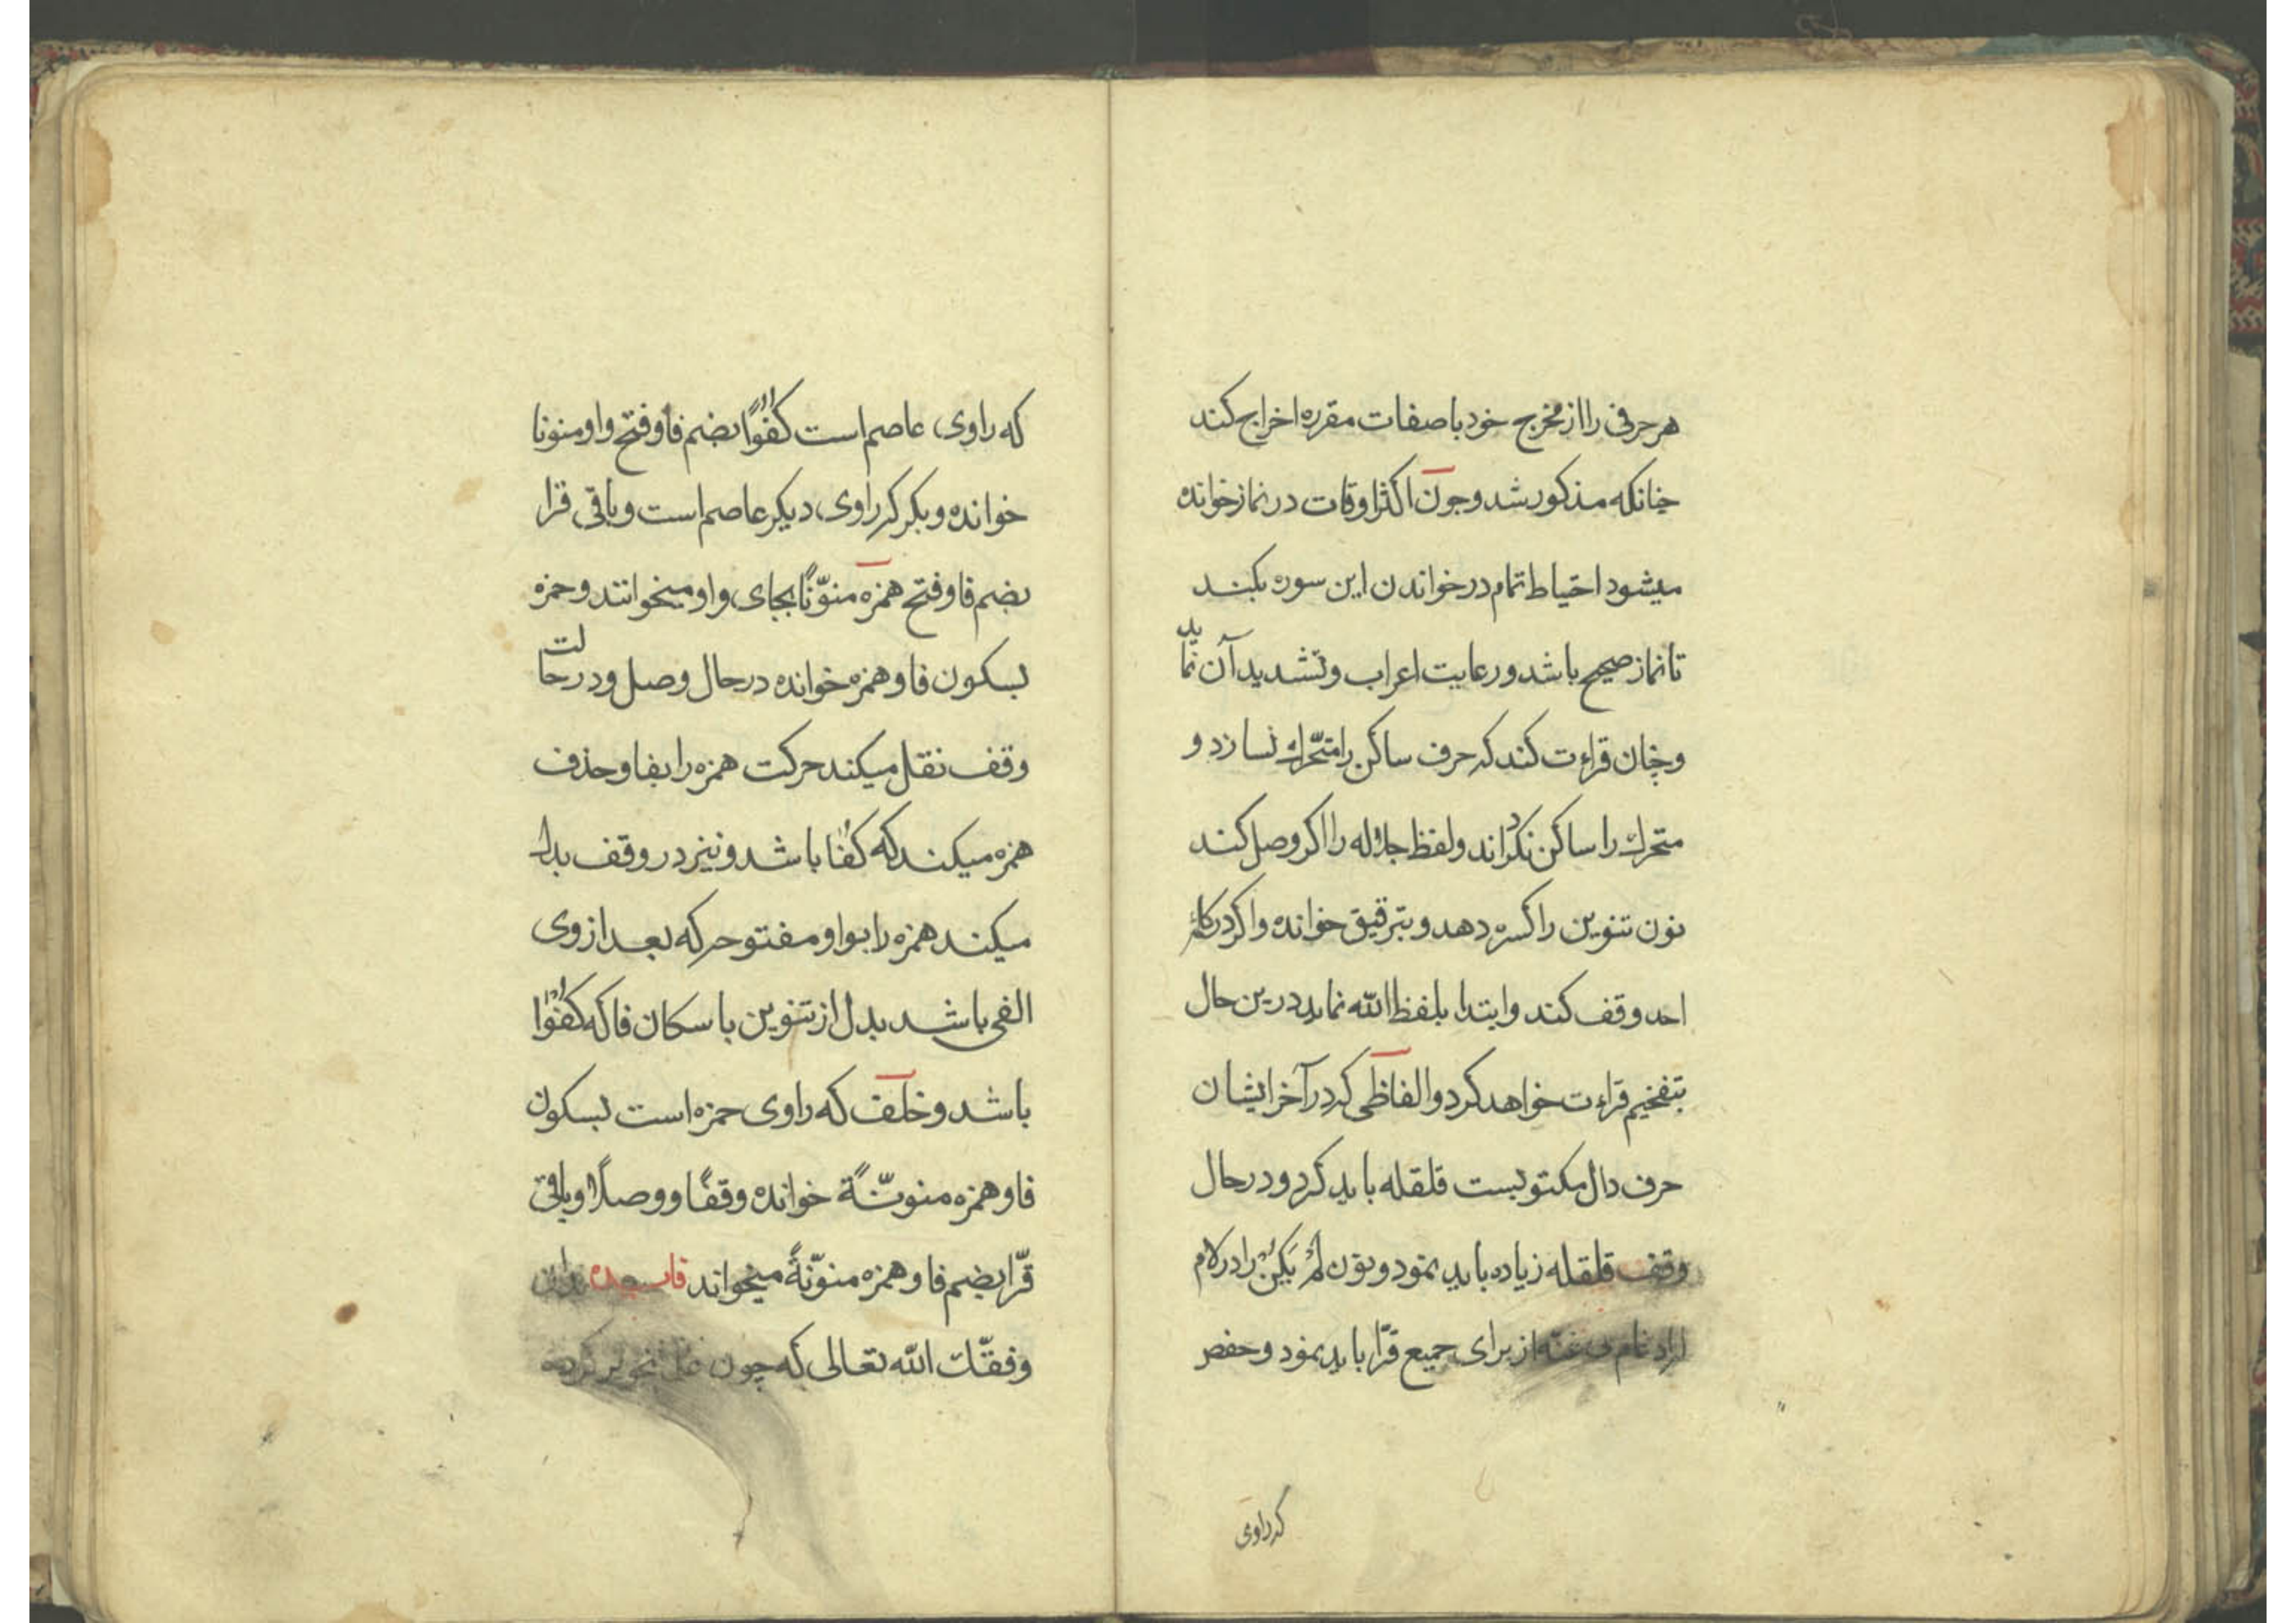 هر حرفی را از مخرج خود با صفات مقرره اخراج کند
چنانکه مذکور شد و چون اکثر اوقات در نماز خوانده
میشود احتیاط تمام در خواندن این سوره بکند
تا نماز صحیح باشد و رعایت اعراب و تشدید آن نماید
و چنان قراءت کند که حرف ساکن را متحرك نسازد و
متحرك را ساکن نکرداند و لفظ جلاله را اکر وصل کند
نون تنوین را کسره دهد و بترقیق خوانده و اکر در کلمهٔ
احد وقف کند و ابتدا بلفظ الله نماید درین حال
بتفخیم قراءت خواهد کرد و الفاظی که در آخر ایشان
حرف دال مکتوبست قلقله باید کرد و در حال
وقف قلقله زیاده باید نمود و نون لَمْ یَکُنْ را در لام
از برای جمیع قرّا باید نمود و حفص
که راوی
که راوی عاصم است کُفُوًا بضم فا و فتح واو منونا
خوانده و بکر که راوی دیکر عاصم است و باقی قرا
بضم فا و فتح همزه منوّنًا بجای واو میخوانند و حمزه
بسکون فا و همزه خوانده در حال وصل و در حالت
وقف نقل میکند حرکت همزه را بفا و حذف
همزه میکند که کُفَا باشد و نیز در وقف بدل
میکند همزه را بواو مفتوحه که بعد از وی
الفی باشد بدل از تنوین با سکان فا که کُفْوَا
باشد و خلف که راوی حمزه است بسکون
فا و همزه منونّةً خوانده وقفًا و وصلًا و باقی
قرّا بضم فا و همزه منوّنةً میخواند بدان
وفقّك الله تعالی که چون